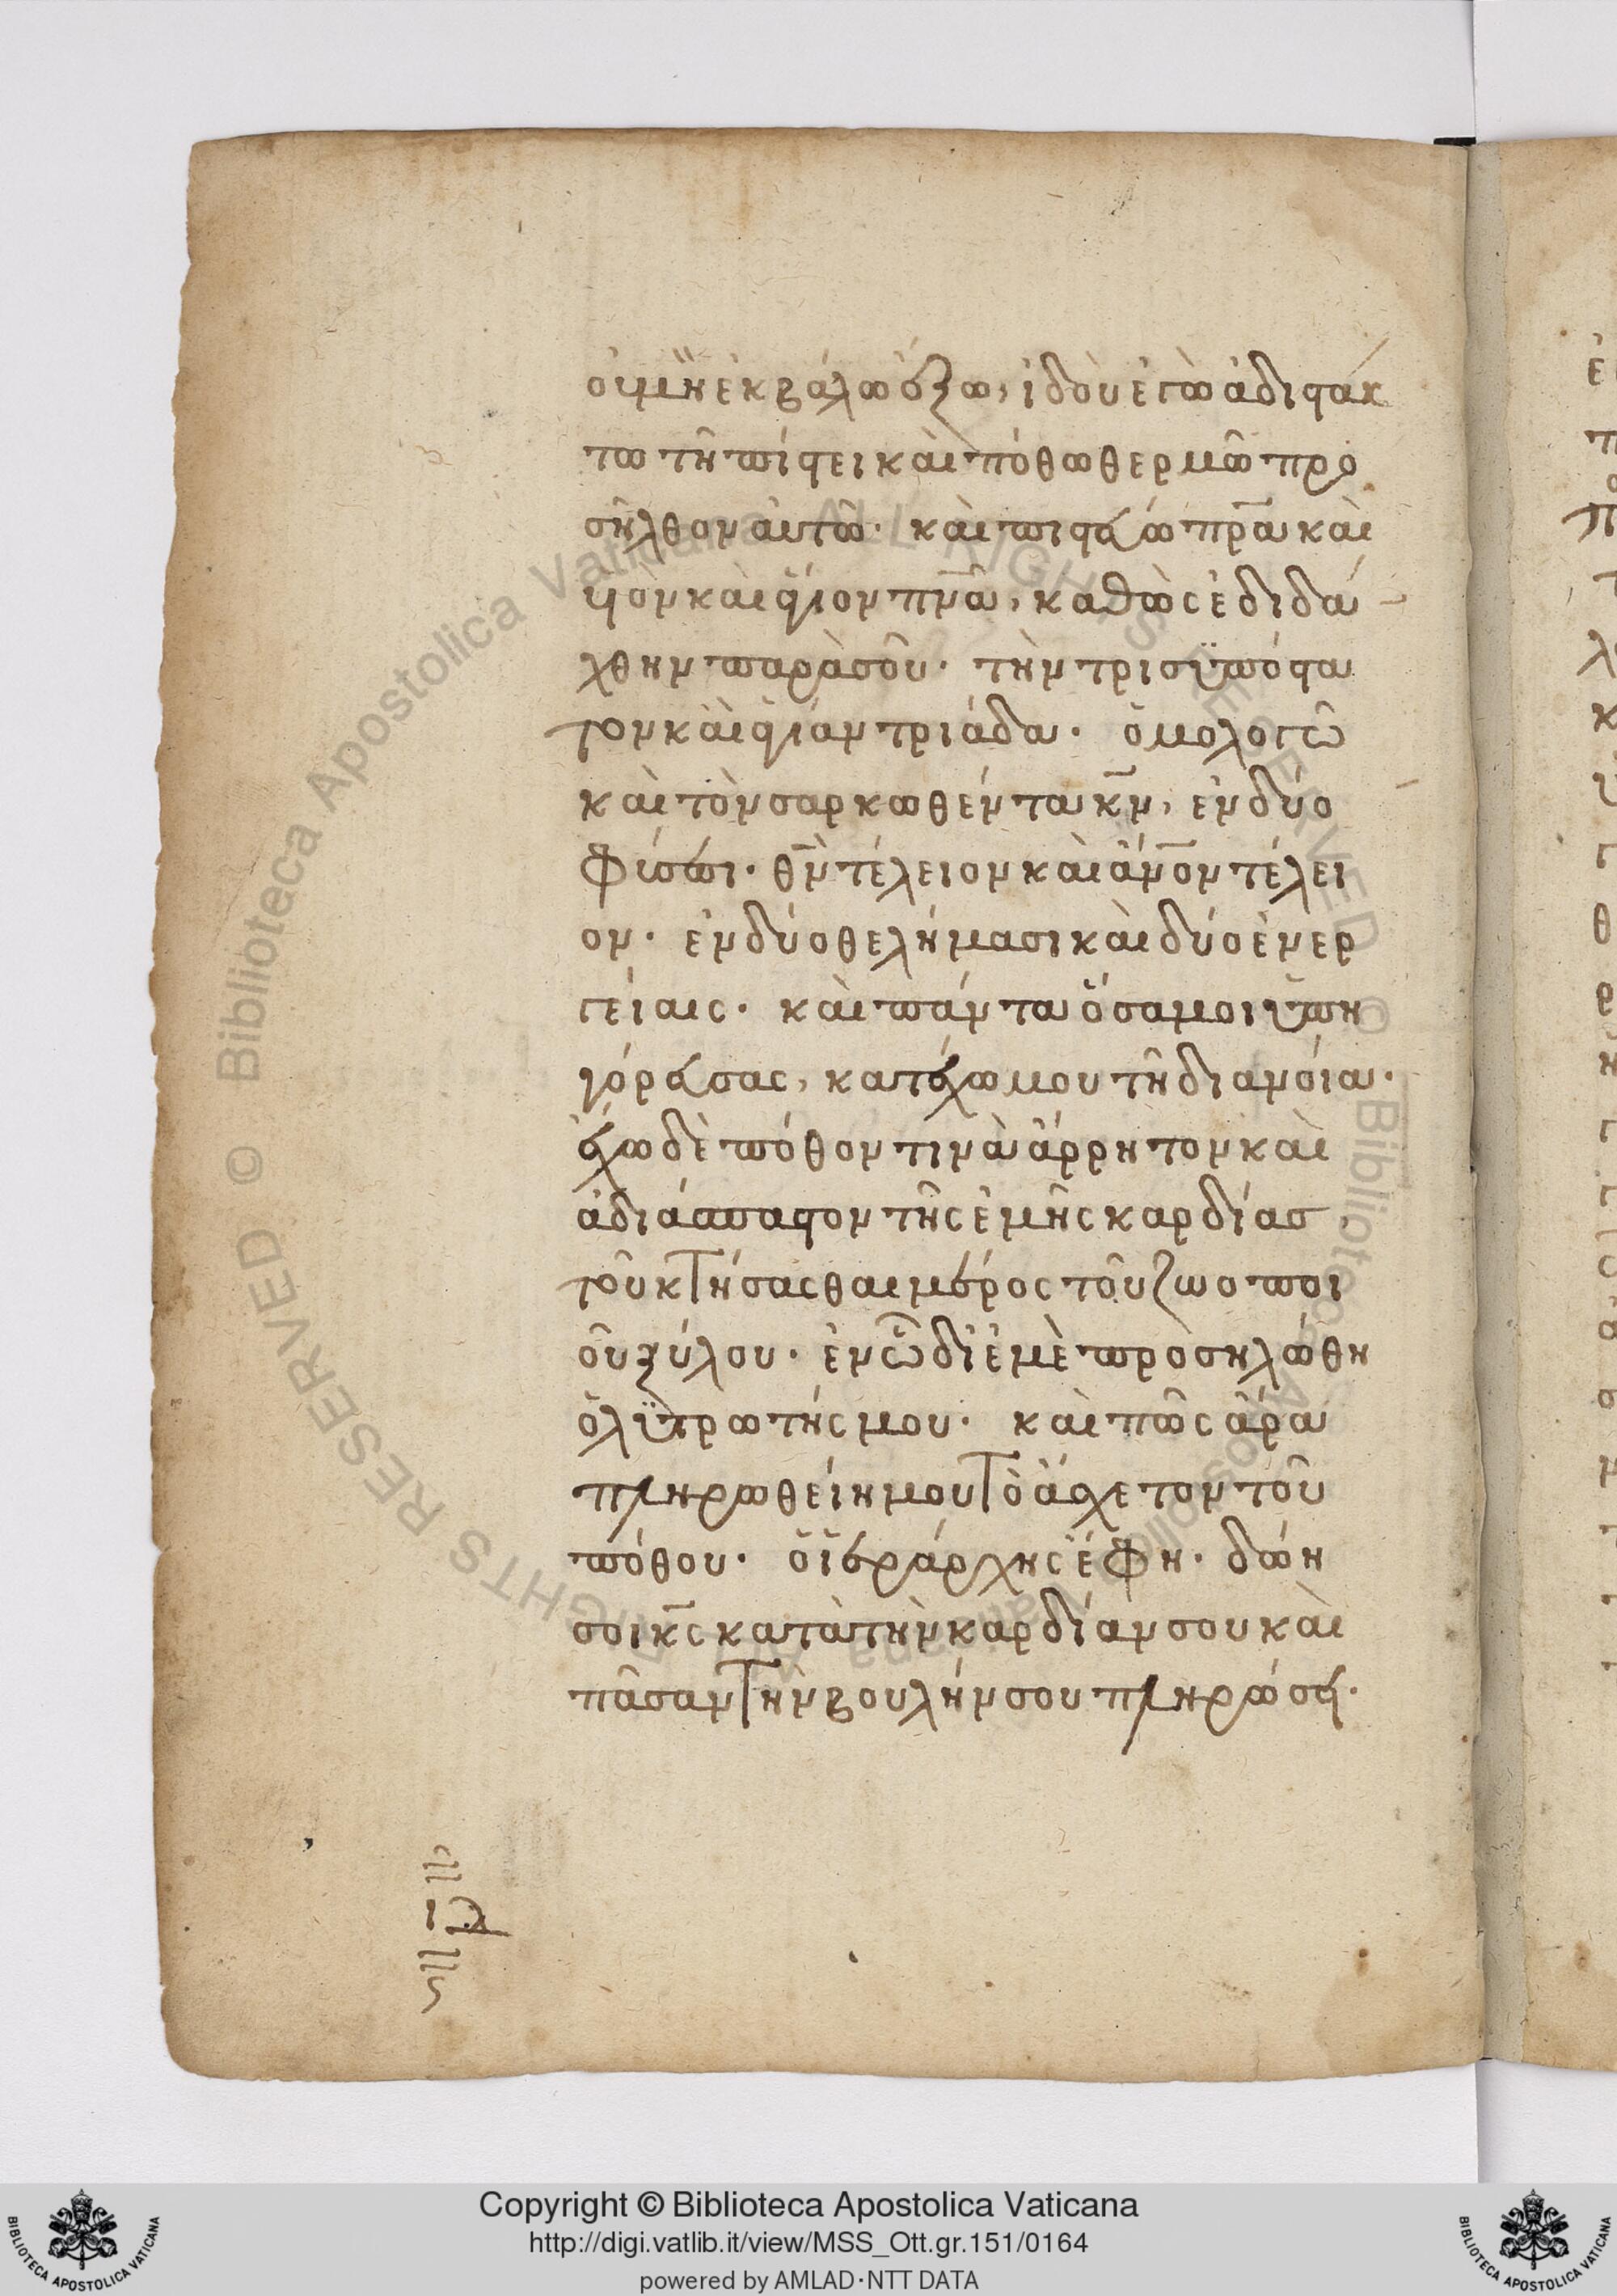 οὐ μὴ ἐκβάλω ἔξω, ἰδοὺ ἐγὼ ἀδιστάκ
τω τῆ πίστει καὶ πόθω θερμῶ προ
σῆλθον αὐτῶ· καὶ πιστεύω πρ̅α καὶ
υἱὸν καὶ ἅγιον πν̅α, καθὼς ἐδιδά
χθην παρὰ σοῦ· τὴν τρισϋπόστα
τον καὶ ἁγίαν τριάδα· ὁμολογῶ
καὶ τὸν σαρκωθέντα κ̅ν, ἐν δύο
φύσεσι· θ̅ν τέλειον καὶ ἄν̅ον τέλει
ον· ἐν δύο θελήμασι καὶ δύο ἐνερ
γείαις· καὶ πάντα ὅσα μοι ὑπη
γόρευσας, κατέχω μου τῆ διανοία·
ἔχω δὲ πόθον τινὰ ἄρρητον καὶ
ἀδιάσπαστον τῆς ἐμῆς καρδίασ,
τοῦ κτήσασθαι μέρος τοῦ ζωοποι
οῦ ξύλου· ἐν ὧ δι ἐμὲ προσηλώθη
ὁ λϋτρωτής μου· καὶ πῶς ἄρα
πληρωθείη μου τὸ ἄσχετον τοῦ
πόθου· ὁ ἱεράρχης ἔφη· δώη
σοι κ̅ς κατὰ τὴν καρδίαν σου καὶ
πᾶσαν τὴν βουλήν σου πληρώσει·
© Biblioteca Apostolica Vaticana ALL RIGHTS RESERVED
© Biblioteca Apostolica Vaticana ALL RIGHTS RESERVED
Copyright © Biblioteca Apostolica Vaticana
http://digi.vatlib.it/view/MSS_Ott.gr.151/0164
powered by AMLAD·NTT DATA
BIBLIOTECA APOSTOLICA VATICANA
BIBLIOTECA APOSTOLICA VATICANA